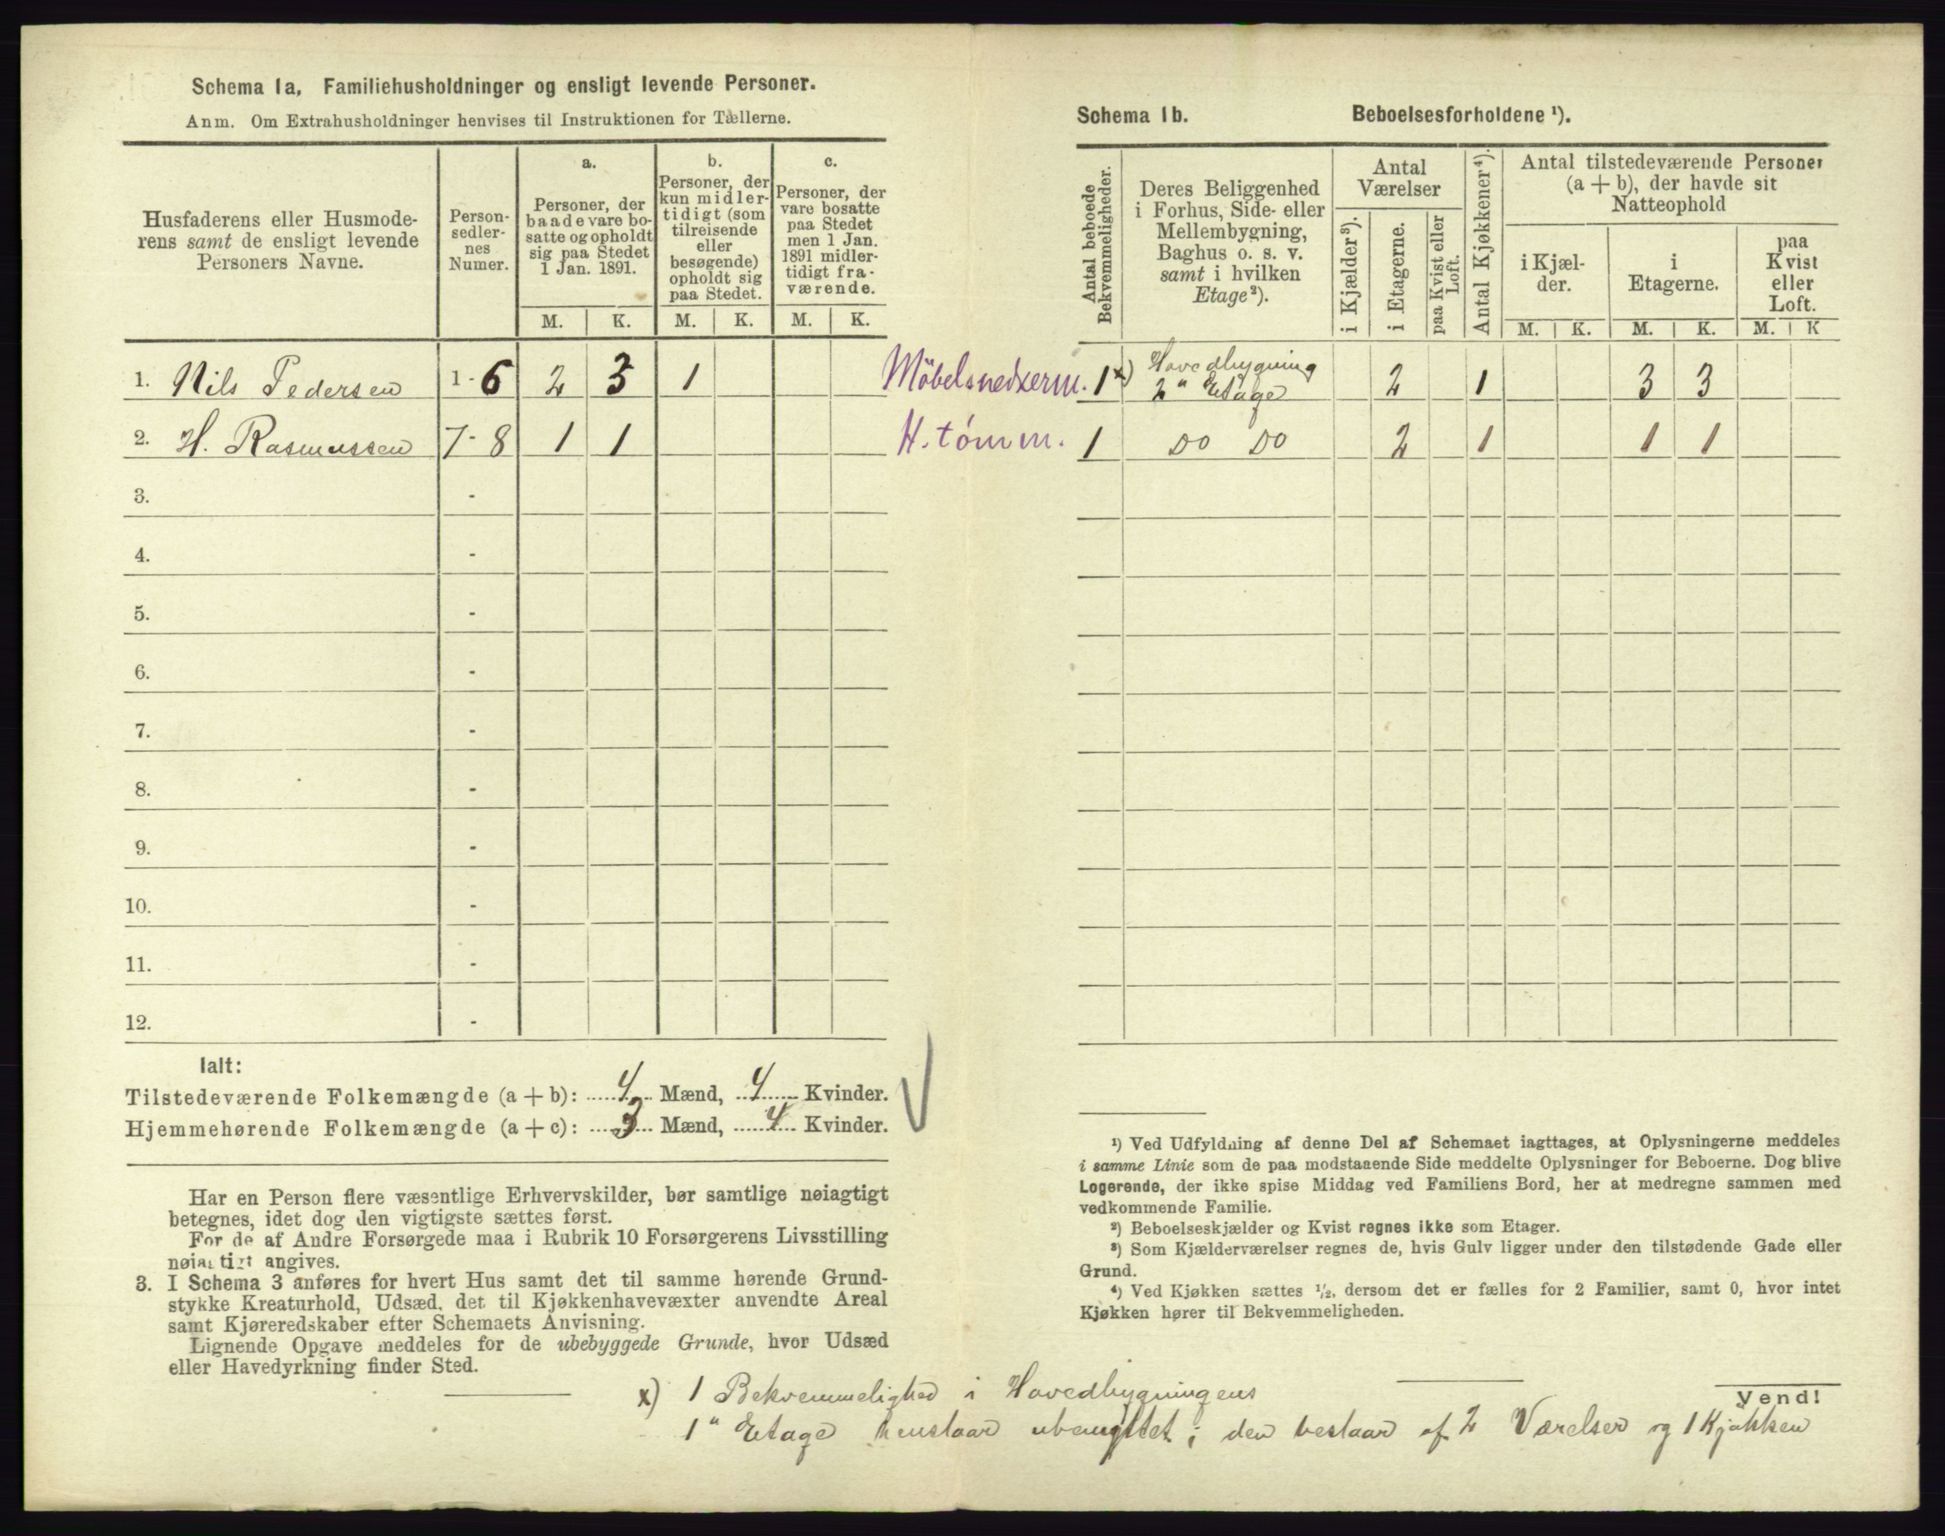 Schema 1a. Familiehusholdninger og ensligt levende Personer.
Anm. Om Extrahusholdninger henvises til Instruktionen for Tællerne.
Husfaderens eller Husmode-
rens samt de ensligt levende
Personers Navne.
Person-
sedler-
nes
Numer.
a.
Personer, der
baade vare bo-
satte og opholdt
sig paa Stedet
1 Jan. 1891.
b.
Personer, der
kun midler-
tidigt (som
tilreisende
eller
besøgende)
opholdt sig
paa Stedet.
c.
Personer, der
vare bosatte
paa Stedet
men 1 Jan.
1891 midler-
tidigt fra-
værende.
M. K. M. K. M. K.
1. Nils Pedersen 1-6 2 3 1 Möbelsnedkerm.
2. H. Rasmussen 7-8 1 1 H. tømm.
3. -
4. -
5. -
6. -
7. -
8. -
9. -
10. -
11. -
12. -
Ialt:
Tilstedeværende Folkemængde (a + b): 4 Mænd, 4 Kvinder.
Hjemmehørende Folkemængde (a + c): 3 Mænd, 4 Kvinder.
Har en Person flere væsentlige Erhvervskilder, bør samtlige nøiagtigt
betegnes, idet dog den vigtigste sættes først.
For de af Andre Forsørgede maa i Rubrik 10 Forsørgerens Livsstilling
nøiagtigt angives.
3. I Schema 3 anføres for hvert Hus samt det til samme hørende Grund-
stykke Kreaturhold, Udsæd, det til Kjøkkenhavevæxter anvendte Areal
samt Kjøreredskaber efter Schemaets Anvisning.
Lignende Opgave meddeles for de ubebyggede Grunde, hvor Udsæd
eller Havedyrkning finder Sted.
Schema 1b. Beboelsesforholdene ¹).
Antal beboede
Bekvemmeligheder.
Deres Beliggenhed
i Forhus, Side- eller
Mellembygning,
Baghus o. s. v.
samt i hvilken
Etage²).
Antal
Værelser
i Kjælder³).
i Etagerne.
paa Kvist eller
Loft.
Antal Kjøkkener⁴).
Antal tilstedeværende Personer
(a + b), der havde sit
Natteophold
i Kjæl-
der.
i
Etagerne.
paa
Kvist
eller
Loft.
M. K. M. K. M. K
1 x) Hovedbygning
2" Etage 2 1 3 3
1 Do Do 2 1 1 1
¹) Ved Udfyldning af denne Del af Schemaet iagttages, at Oplysningerne meddeles
i samme Linie som de paa modstaaende Side meddelte Oplysninger for Beboerne. Dog blive
Logerende, der ikke spise Middag ved Familiens Bord, her at medregne sammen med
vedkommende Familie.
²) Beboelseskjælder og Kvist regnes ikke som Etager.
³) Som Kjælderværelser regnes de, hvis Gulv ligger under den tilstødende Gade eller
Grund.
⁴) Ved Kjøkken sættes ½, dersom det er fælles for 2 Familier, samt 0, hvor intet
Kjøkken hører til Bekvemmeligheden.
Vend!
x) 1 Bekvemmelighed i Hovedbygningens
1" Etage henstaar ubenyttet; den bestaar af 2 Værelser og 1 Kjøkken